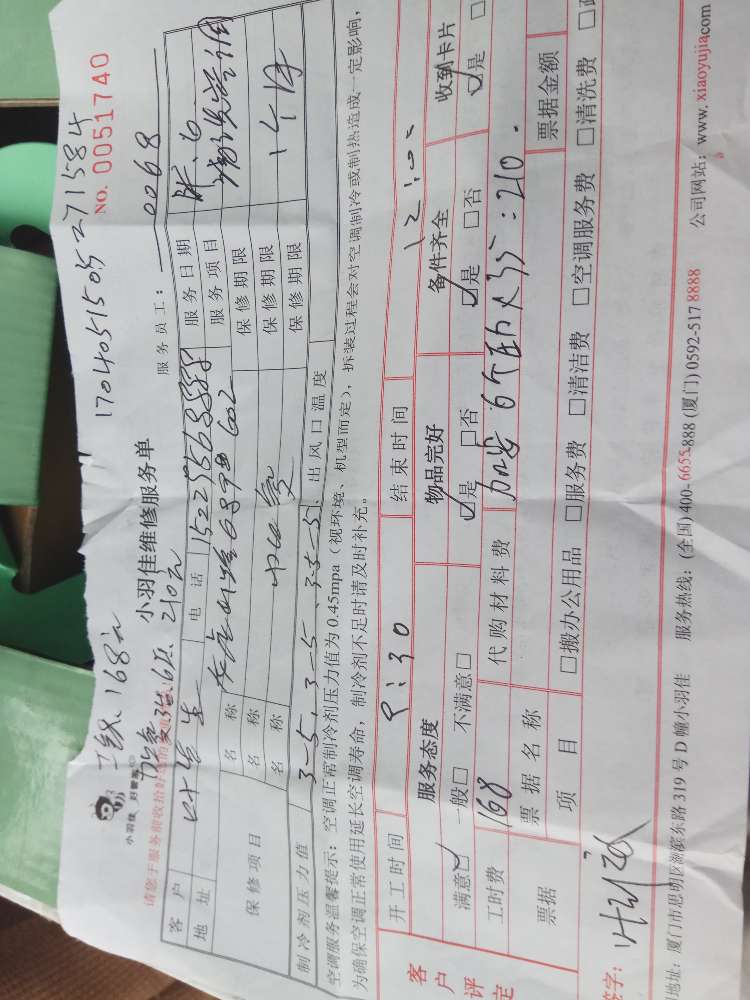 170405150527 1584
二级.168元
NO. 0051740
小羽佳 好管家
小羽佳维修服务单
服务员工： 0068
请您于服务前收拾好您的
加氟.35.6压. 210元
客 户 叶先生 电 话 服务日期
地 址 服务项目
保修项目 名 称 保修期限 1个月
名 称 保修期限
名 称 保修期限
制冷剂压力值 3-5、3-5、3.5-5、出风口温度
空调服务温馨提示：空调正常制冷剂压力值为 0.45mpa（视环境、机型而定），拆装过程会对空调制冷或制热造成一定影响，
为确保空调正常使用延长空调寿命，制冷剂不足时请及时补充。
客户评定
开工时间 9：30 结束时间 12：00
服务态度 物品完好 备件齐全 收到卡片
满意☑ 一般□ 不满意□ ☑是 □否 ☑是 □否 ☑是 □
工时费 168 代购材料费 加氟 6个压力 35：210.
票据 票据名称 票据金额
项 目 □搬办公用品 □服务费 □清洁费 □空调服务费 □清洗费
签字：
地址：厦门市思明区湖滨东路 319 号 D 幢小羽佳 服务热线：(全国)400-6655-888 (厦门) 0592-517 8888 公司网站：www.xiaoyujia.com